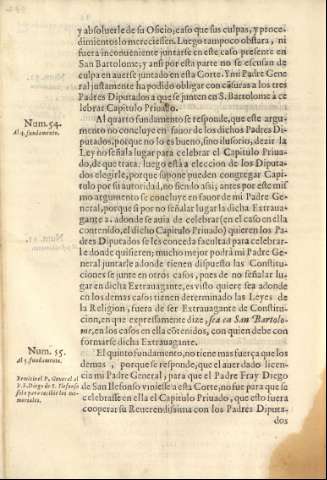 y absoluerle de su Oficio, caso que sus culpas, y proce-
dimientos lo mereciessen. Luego tampoco obstara, ni
fuera inconueniente juntarse en este caso presente en
San Bartolome; y ansi por esta parte no se escusan de
culpa en auerse juntado en esta Corte. Y mi Padre Gene
ral justamente ha podido obligar con cēsuras a los tres
Padres Diputados a que se junten en S. Bartolome à ce
lebrar Capitulo Priuado.
Num. 54.
Al 4. fundamento.
Al quarto fundamento se responde, que este argu-
mento no concluye en fauor de los dichos Padres Di-
putados, porque no lo es bueno, sino ilusorio, dezir la
Ley no señala lugar para celebrar el Capitulo Priua-
do, de que trata: luego está a eleccion de los Diputa-
dos elegirle, porque supone pueden congregar Capi-
tulo por su autoridad, no siendo assi; antes por este mis
mo argumento se concluye en fauor de mi Padre Ge-
neral, porque si por no señalar lugar la dicha Extraua-
gante a donde se auia de celebrar (en el caso en ella
contenido, el dicho Capitulo Priuado) quieren los Pa-
dres Diputados se les conceda facultad para celebrar-
le donde quisieren; mucho mejor podrá mi Padre Ge-
neral juntarle adonde tienen dispuesto las Constitu-
ciones se junte en otros casos, pues de no señalar lu-
gar en dicha Extrauagante, es visto quiere sea adonde
en los demas casos tienen determinado las Leyes de
la Religion, fuera de ser Extrauagante de Constitu-
cion, en que expressamente dize, sea en San Bartolo-
me, en los casos en ella cōtenidos, con quien debe con
formarse dicha Extrauagante.
Num. 55.
Al 5. fundamento.
El quinto fundamento, no tiene mas fuerça que los
demas, porque se responde, que el auer dado licen-
cia mi Padre General, para que el Padre Fray Diego
de San Ilefonso viniesse a esta Corte, no fue para que se
celebrasse en ella el Capitulo Priuado, que esto fuera
cooperar su Reuerendissima con los Padres Diputa-
dos
Remitio el P. General al
P. F. Diego de S. Ilefonso
solo para recibir los me-
moriales.